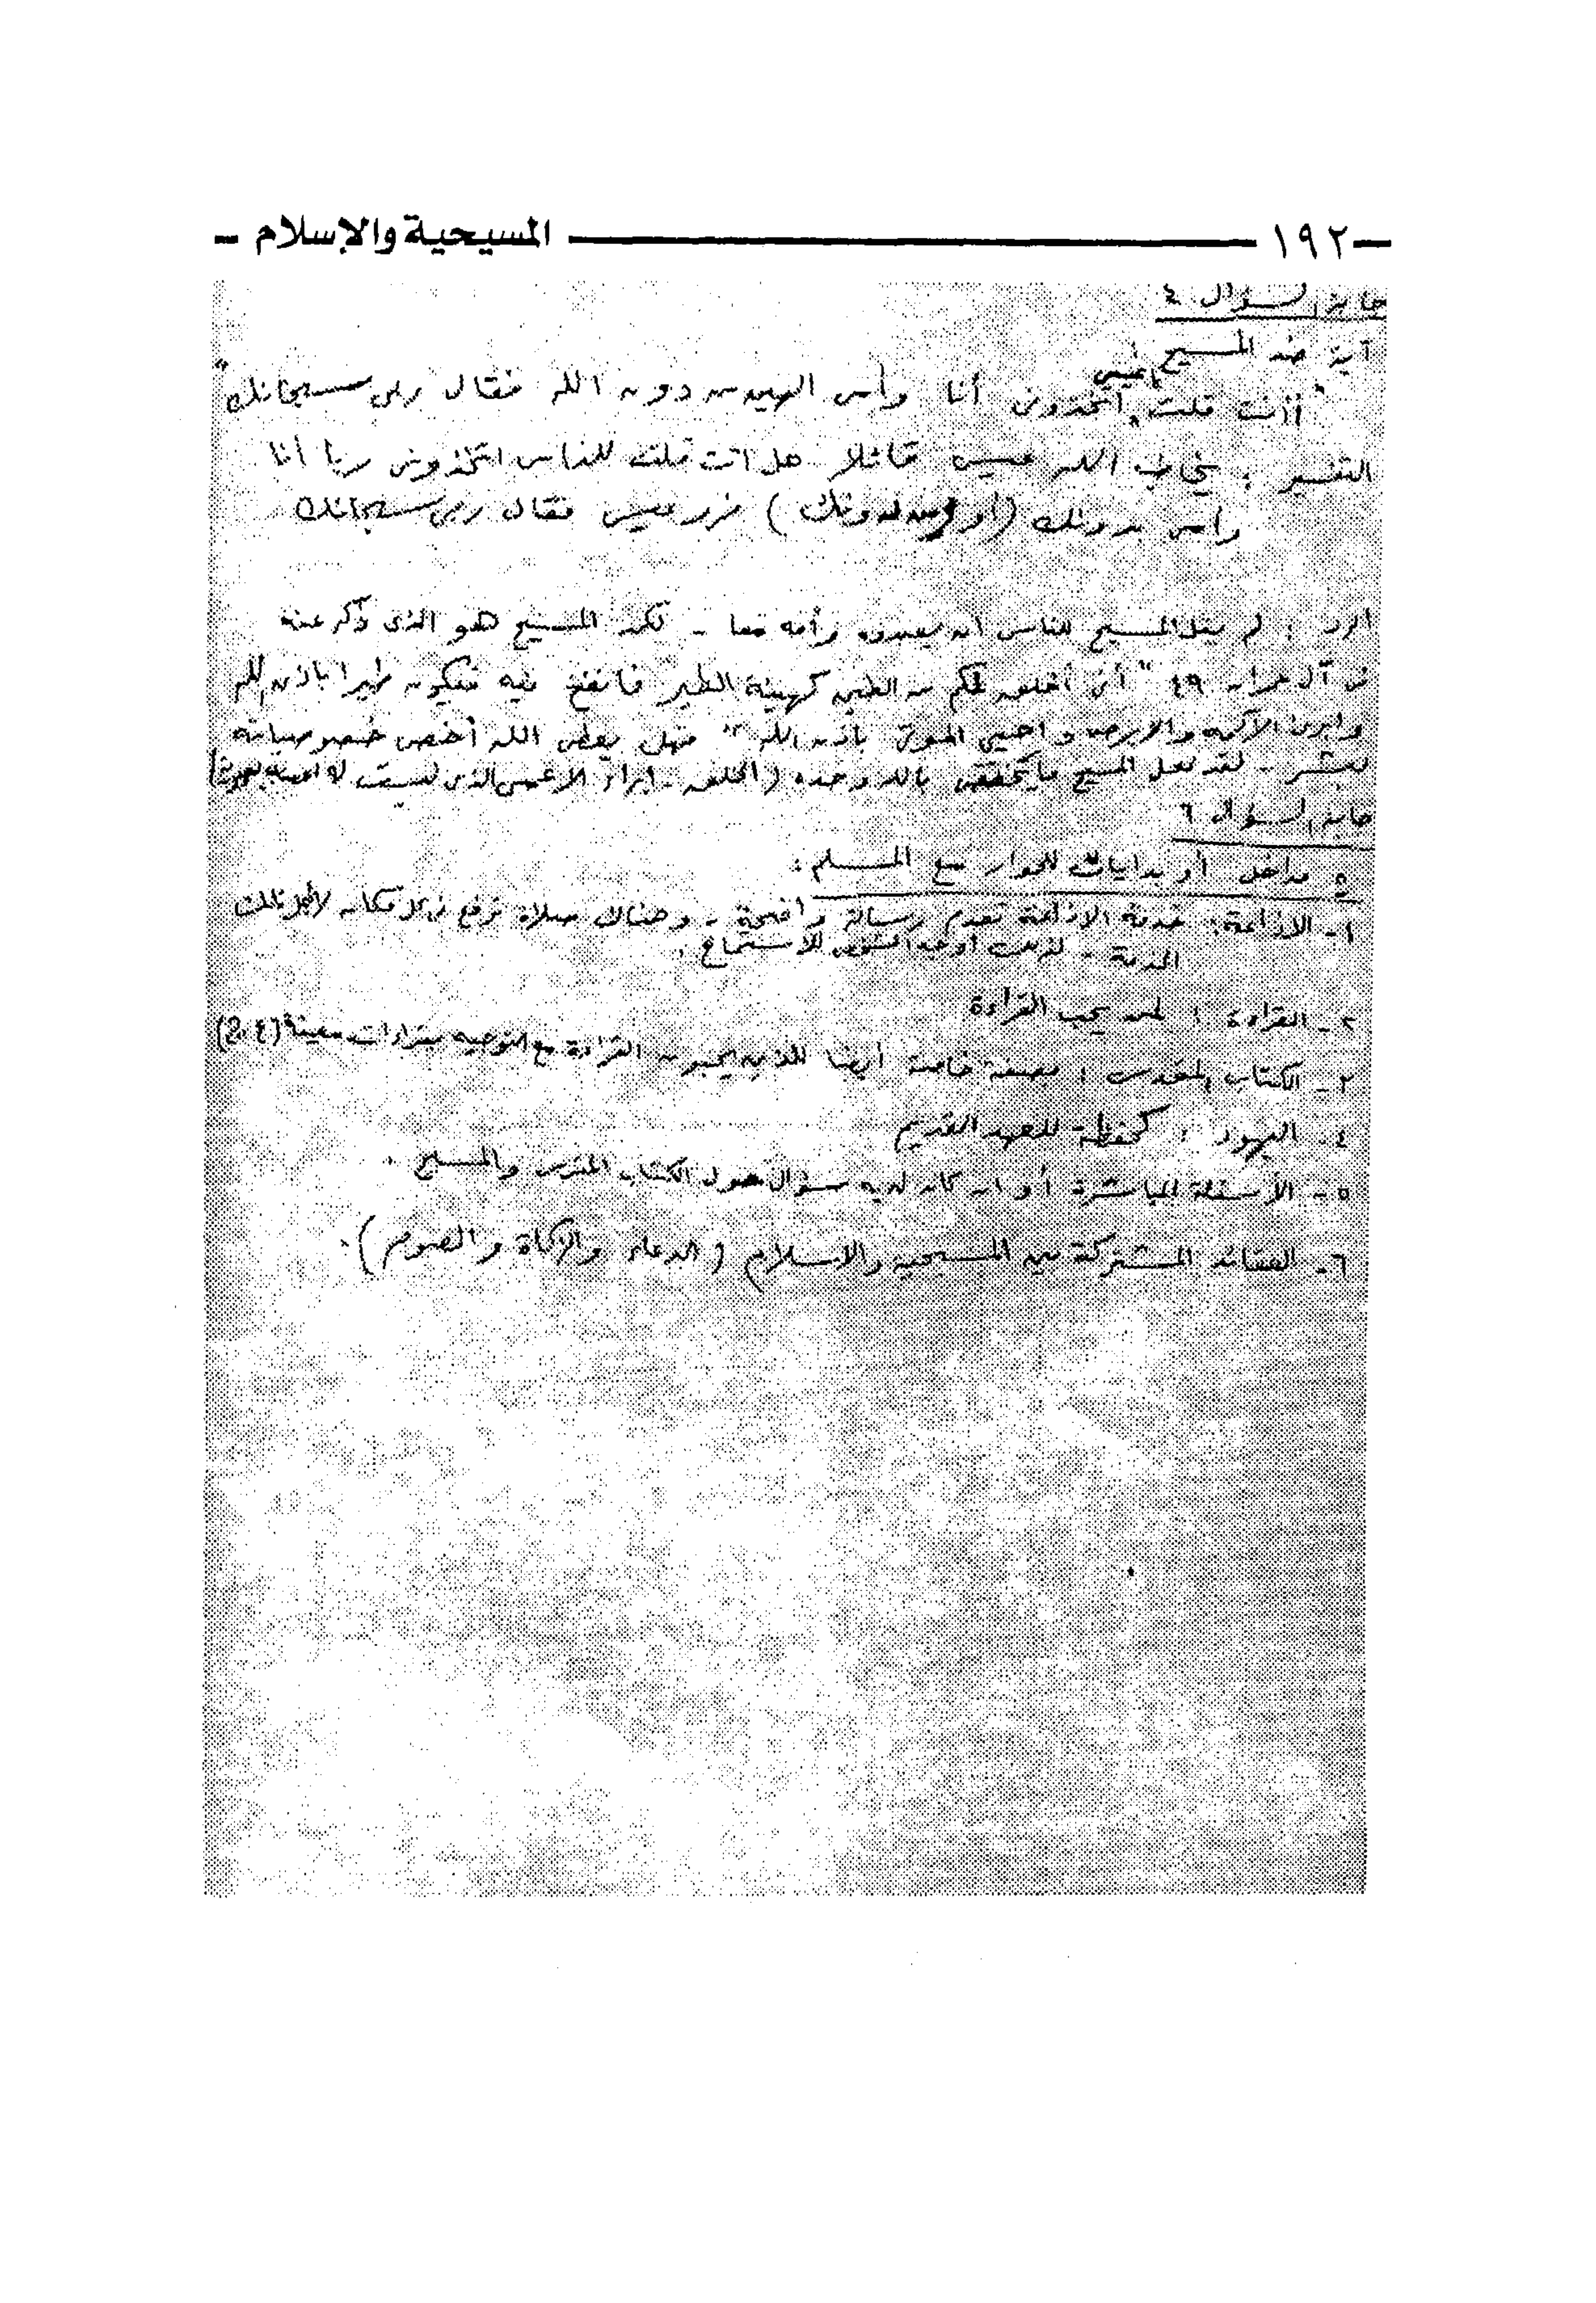 ١٩٢ المسيحية والإسلام
السؤال ٤
آية ضد المسيح
يا عيسى
"أأنت قلت اتخذونى أنا وأمى الهين من دون الله فقال ربى سبحانك"
التفسير : يخاطب الله عيسى قائلا هل انت قلت للناس اتخذونى ربا أنا
وأمى من دونك فرد عيسى فقال ربى سبحانك
الرد : لم يقل المسيح للناس أن يعبدوه وأمه معا - لكن المسيح هو الذى ذكر عنه
فى آل عمران ٤٩ "أنى أخلق لكم من الطين كهيئة الطير فانفخ فيه فيكون طيرا باذن الله
وابرئ الأكمه والابرص واحيى الموتى باذن الله" فهل يعطى الله أخص خصوصياته
لبشر - لقد فعل المسيح ما يختص بالله وحده (الخلق - ابراء الاعمى الذى ليست له
السؤال ٦
٥ مداخل أو بدايات للحوار مع المسلم :
١- الاذاعة : خدمة الاذاعة تقدم رسالة واضحة - وهناك صلاة ترفع فى كل مكان لأجل تلك
الخدمة - للاستماع .
٢- القراءة : لمن يحب القراءة
٣- الكتاب المقدس : بصفة خاصة أيضا للذين يحبون القراءة مع التوجيه بقراءات معينة
٤- اليهود : كحفظة للعهد القديم
٥- الأسئلة المباشرة أو ان كان لديه سؤال حول الكتاب المقدس والمسيح .
٦- العقائد المشتركة بين المسيحيه والاسلام (الدعاء والزكاة والصوم) .